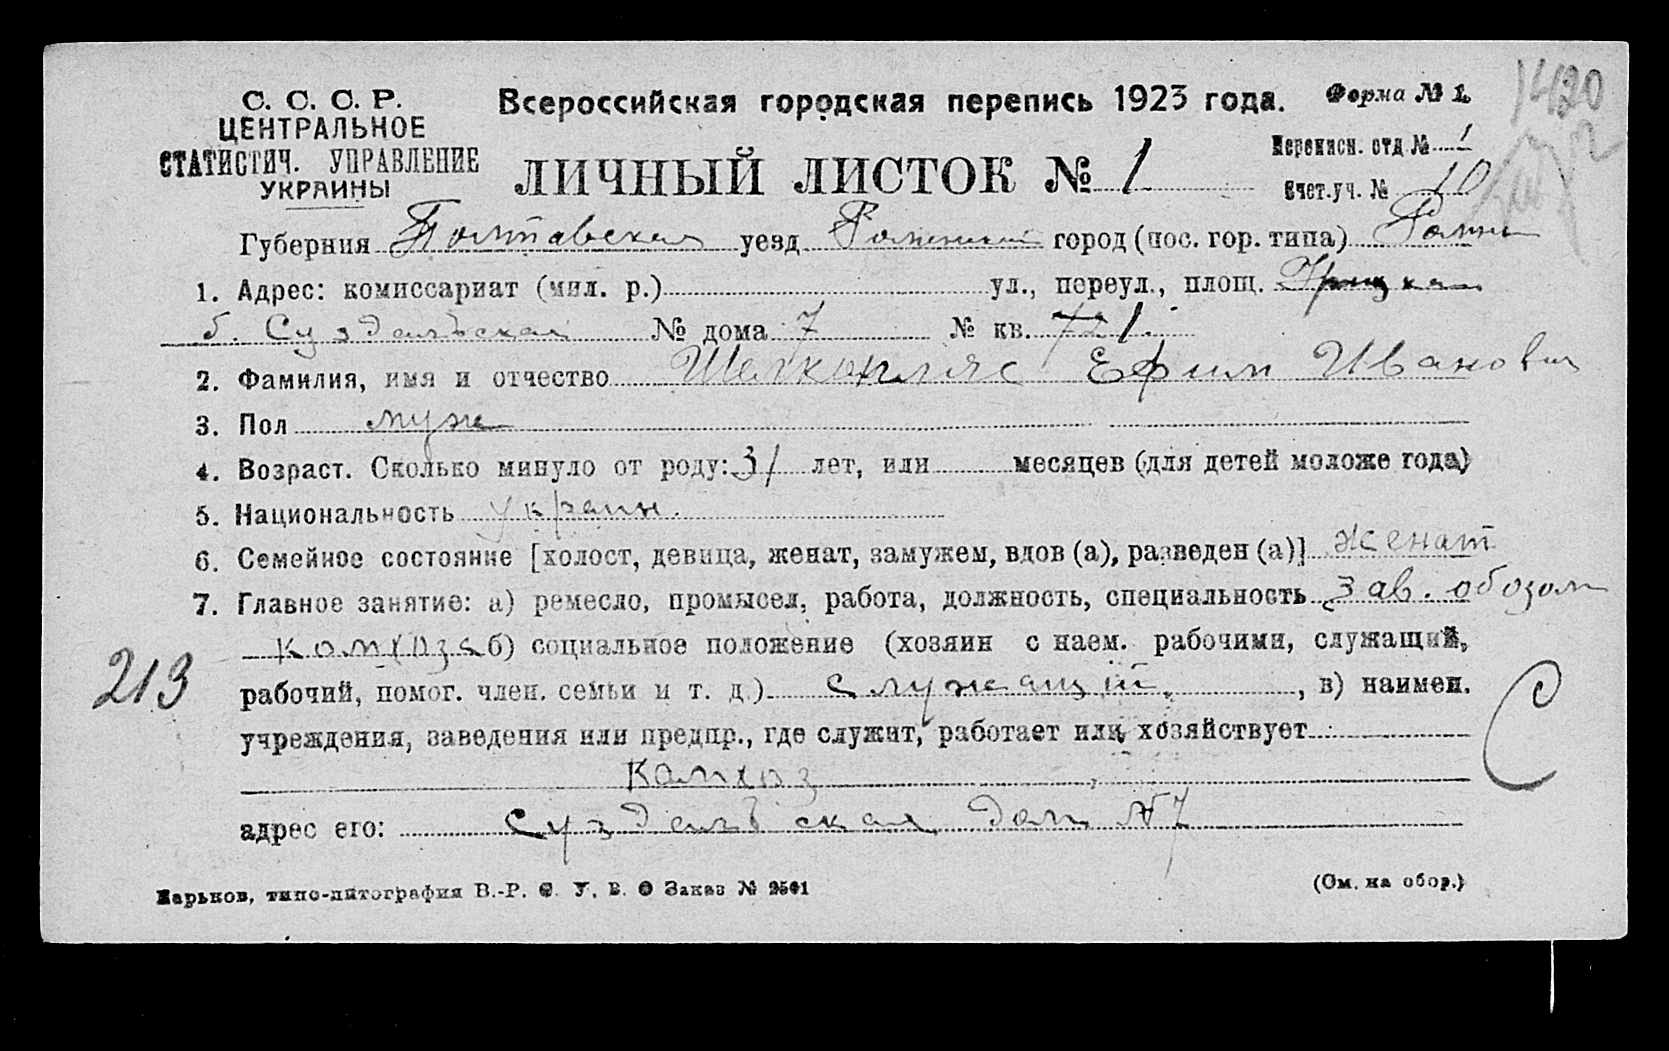 С. С. С. Р.
ЦЕНТРАЛЬНОЕ
СТАТИСТИЧ. УПРАВЛЕНИЕ
УКРАИНЫ
Всероссийская городская перепись 1923 года. Форма № 1.
1420
ЛИЧНЫЙ ЛИСТОК № 1
Переписн. отд. № 1
Счет. уч. № 10
Губерния Полтавская уезд Роменский город (пос. гор. типа) Ромны
1. Адрес: комиссариат (мил. р.) ул., переул., площ. Урицкая
б. Суздальская № дома 7 № кв. 1.
2. Фамилия, имя и отчество Ефим Иванович
3. Пол муж
4. Возраст. Сколько минуло от роду: 31 лет, или месяцев (для детей моложе года)
5. Национальность украин.
6. Семейное состояние [холост, девица, женат, замужем, вдов (а), разведен (а)] женат
7. Главное занятие: а) ремесло, промысел, работа, должность, специальность зав. обозом
комхоза б) социальное положение (хозяин с наем. рабочими, служащий,
213
рабочий, помог. член. семьи и т. д.) служащий, в) наимен.
С
учреждения, заведения или предпр., где служит, работает или хозяйствует
Комхоз
адрес его: Суздальская дом № 7
Харьков, типо-литография В.-Р. С. У. В. О Заказ № 2501
(См. на обор.)